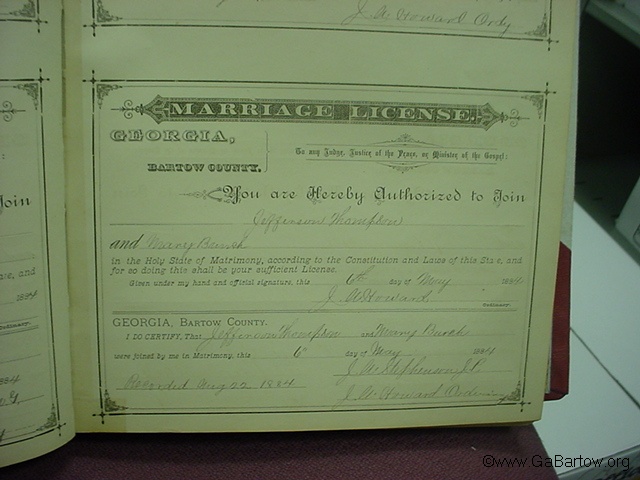 J. A. Howard Ordy
MARRIAGE LICENSE.
GEORGIA,
BARTOW COUNTY.
To any Judge, Justice of the Peace, or Minister of the Gospel:
You are Hereby Authorized to Join
Jefferson Thompson
and Mary Burch
in the Holy State of Matrimony, according to the Constitution and Laws of this State, and
for so doing this shall be your sufficient License.
Given under my hand and official signature, this 6th day of May 1884
J. A. Howard
Ordinary.
GEORGIA, BARTOW COUNTY.
I DO CERTIFY, That Jefferson Thompson and Mary Burch
were joined by me in Matrimony, this 6th day of May 1884
J. W.
Recorded Aug 22 1884
J. A. Howard Ordinary
Join
and
1884
Ordinary.
1884
©www.GaBartow.org